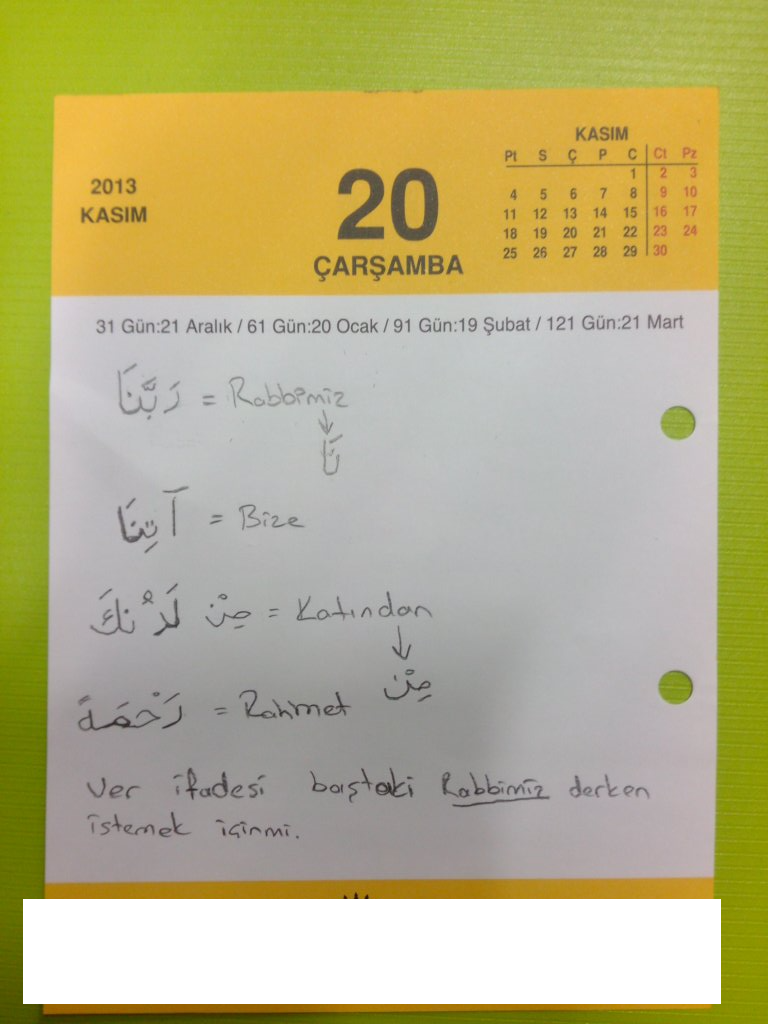 2013
KASIM
20
ÇARŞAMBA
KASIM
Pt S Ç P C Ct Pz
1 2 3
4 5 6 7 8 9 10
11 12 13 14 15 16 17
18 19 20 21 22 23 24
25 26 27 28 29 30
31 Gün:21 Aralık / 61 Gün:20 Ocak / 91 Gün:19 Şubat / 121 Gün:21 Mart
رَبَّنَا = Rabbimiz
نَا
آتِنَا = Bize
مِنْ لَدُنْكَ = Katından
مِنْ
رَحْمَةً = Rahmet
Ver ifadesi baştaki Rabbimiz derken
istemek içinmi.